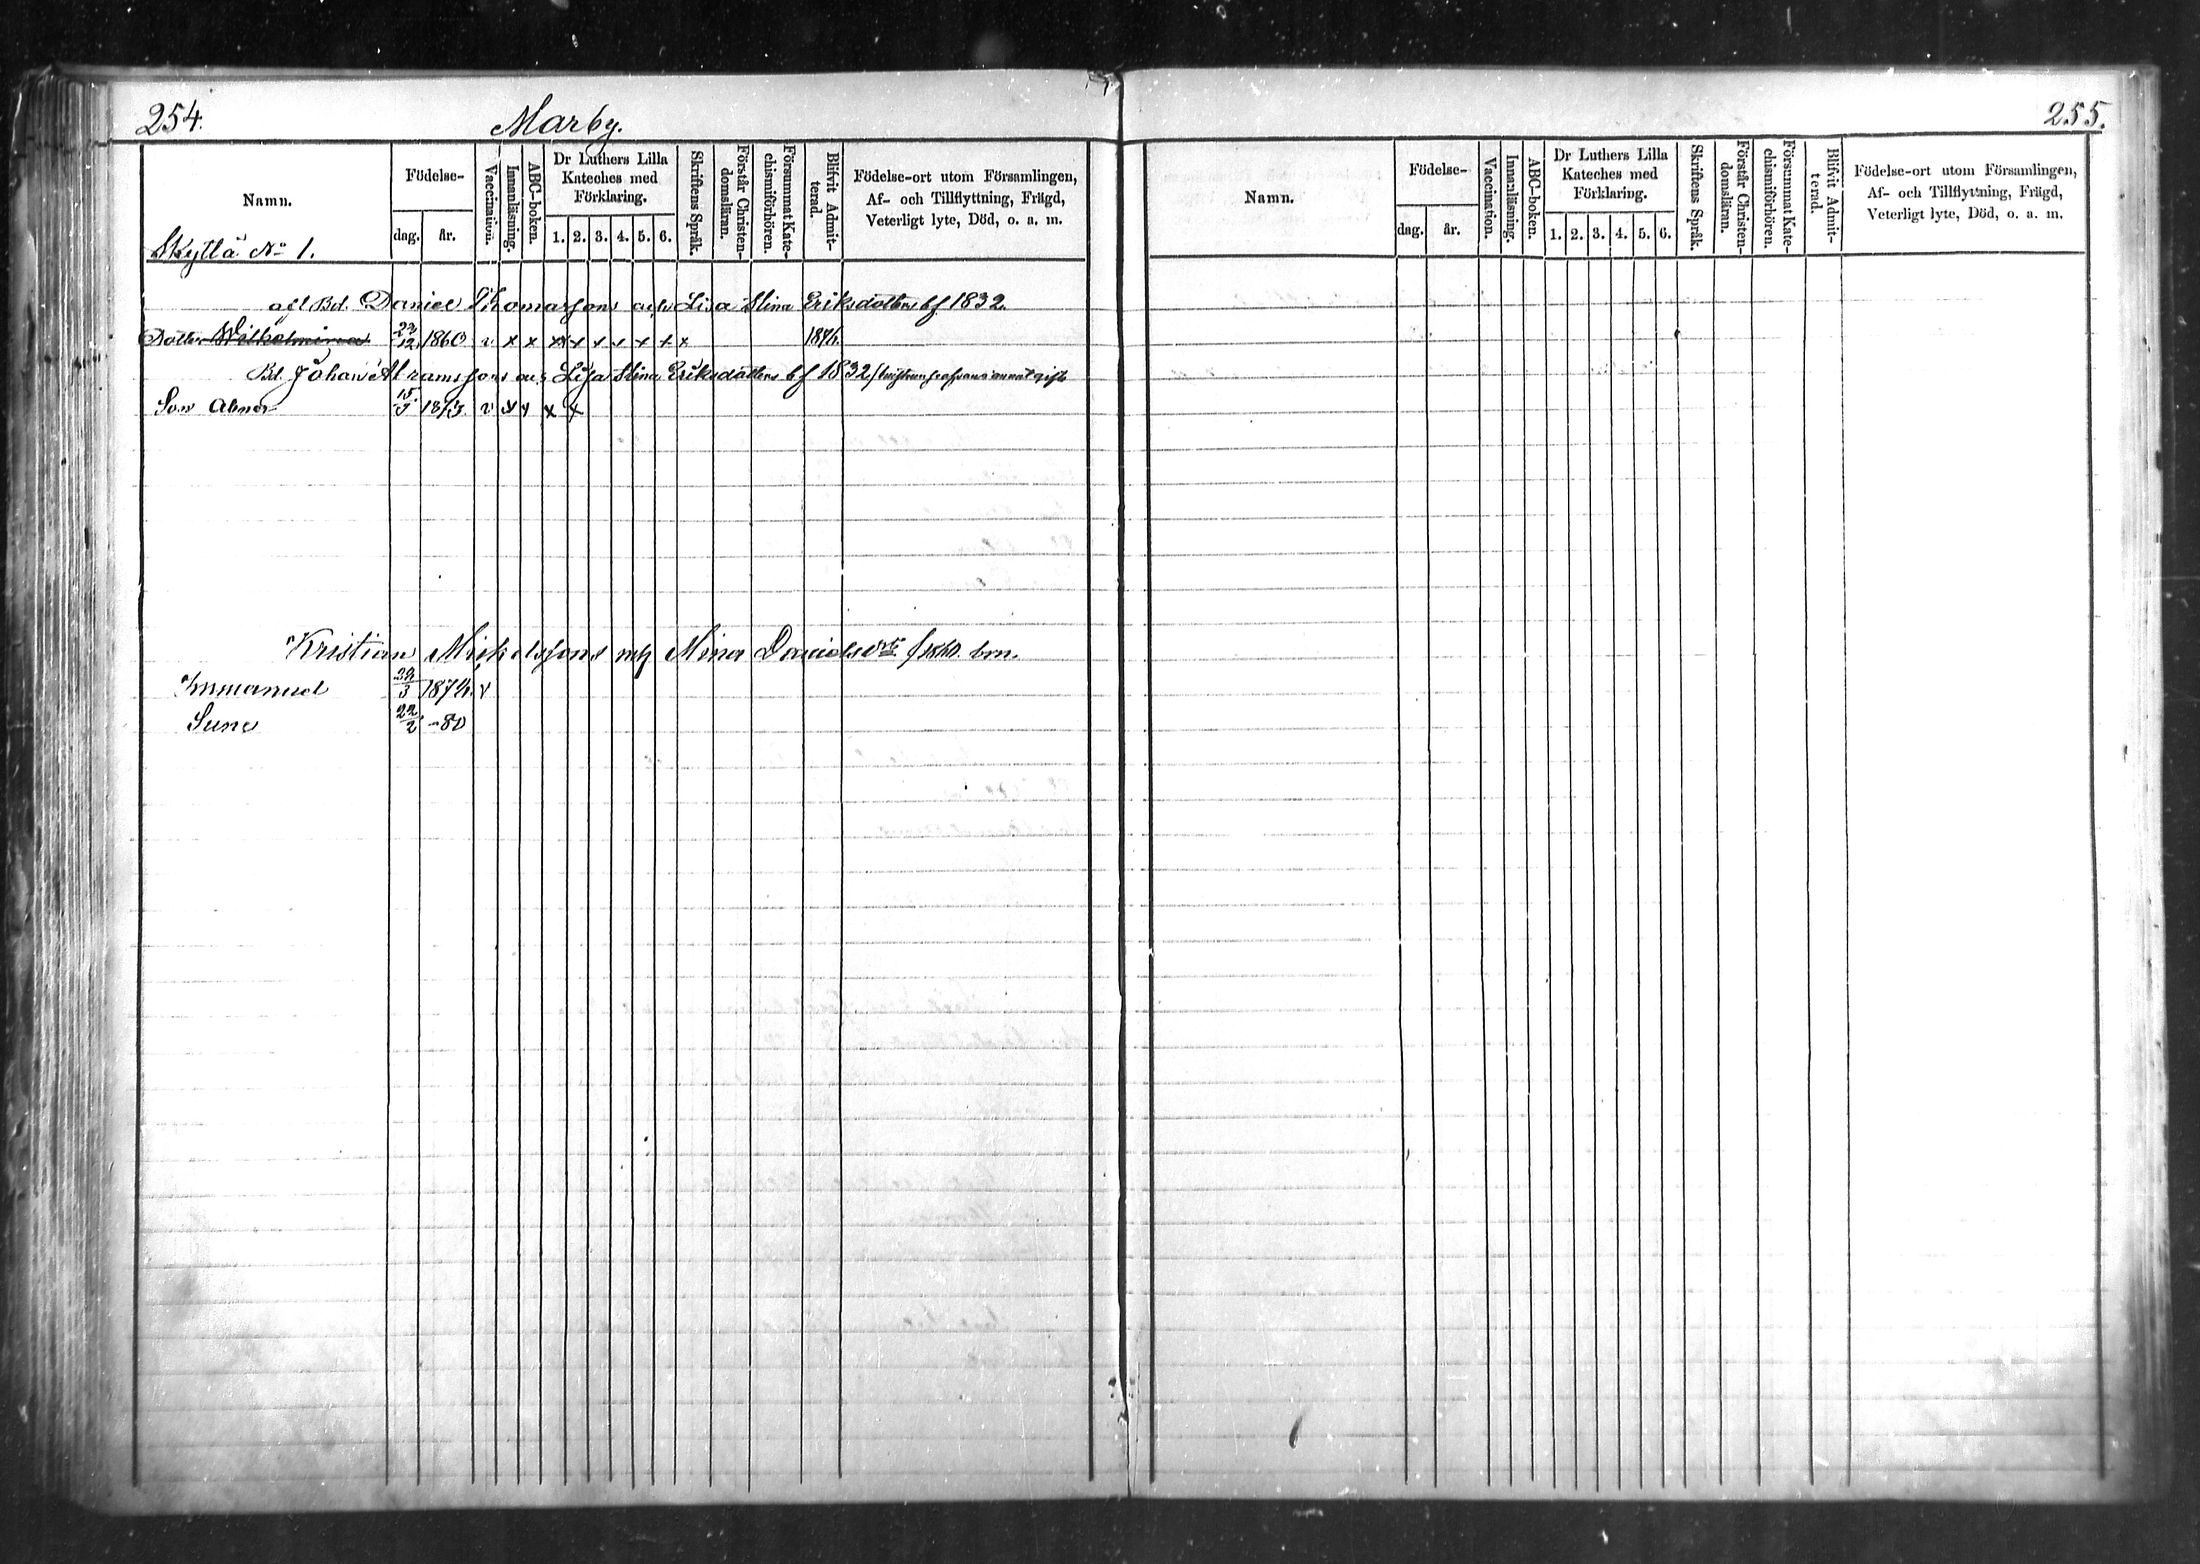 254.
Marby.
Namn.
Födelse-
dag.
år.
Vaccination.
Innanläsning.
ABC-boken.
Dr Luthers Lilla
Kateches med
Förklaring.
1. 2. 3. 4. 5. 6.
Skriftens Språk.
Förstår Christen-
domsläran.
Försummat Kate-
chismiförhören.
Blifvit Admit-
terad.
Födelse-ort utom Församlingen,
Af- och Tillflyttning, Frägd,
Veterligt lyte, Död, o. a. m.
Skyttä No 1.
afl Bd. Daniel Thomassons och Lisa Stina Eriksdotters bf 1832.
Dotter Wilhelmina 23/12 1860 v x x x x x x x x x 1876
Bd. Johan Abramssons och Lisa Stina Eriksdotters bf 1832
Son Abner 15/3 1873. v x x x x
Kristian Michelssons mh Mina Danielsdtr f 1860. brn.
Immanuel 24/3 1874. v
Sune 22/2 -80
255.
Namn.
Födelse-
dag.
år.
Vaccination.
Innanläsning.
ABC-boken.
Dr Luthers Lilla
Kateches med
Förklaring.
1. 2. 3. 4. 5. 6.
Skriftens Språk.
Förstår Christen-
domsläran.
Försummat Kate-
chismiförhören.
Blifvit Admit-
terad.
Födelse-ort utom Församlingen,
Af- och Tillflyttning, Frägd,
Veterligt lyte, Död, o. a. m.